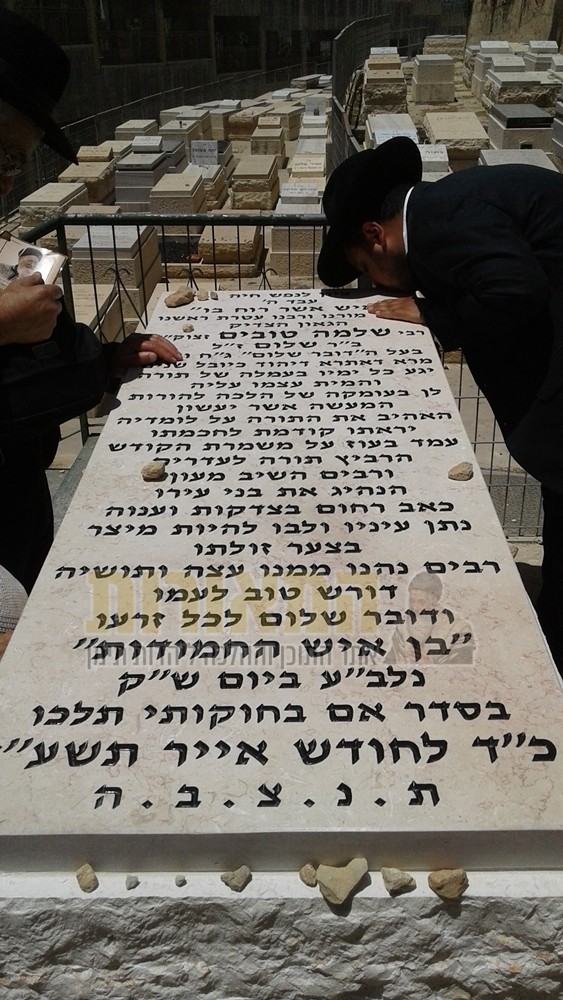 לנפש חיה
עבד ה'
איש אשר רוח בו"
מורנו ורבנו עטרת ראשנו
הגאון הצדיק
רבי שלמה טובים זצוק"
ב"ר שלום ז"ל
בעל ה"דובר שלום" ג"ח
מרא דאתרא דיהוד כיובל
יגע כל ימיו בעמלה של תורה
והמית עצמו עליה
לן בעומקה של הלכה להורות
המעשה אשר יעשון
האהיב את התורה על לומדיה
יראתו קודמת לחכמתו
עמד בעוז על משמרת הקודש
הרביץ תורה לעדרים
ורבים השיב מעון
הנהיג את בני עירו
כאב רחום בצדקות וענוה
נתן עיניו ולבו להיות מיצר
בצער זולתו
רבים נהנו ממנו עצה ותושיה
דורש טוב לעמו
ודובר שלום לכל זרעו
"בן איש החמודות"
נלב"ע ביום ש"ק
בסדר אם בחוקותי תלכו
כ"ד לחודש אייר תשע"
ת . נ . צ . ב . ה